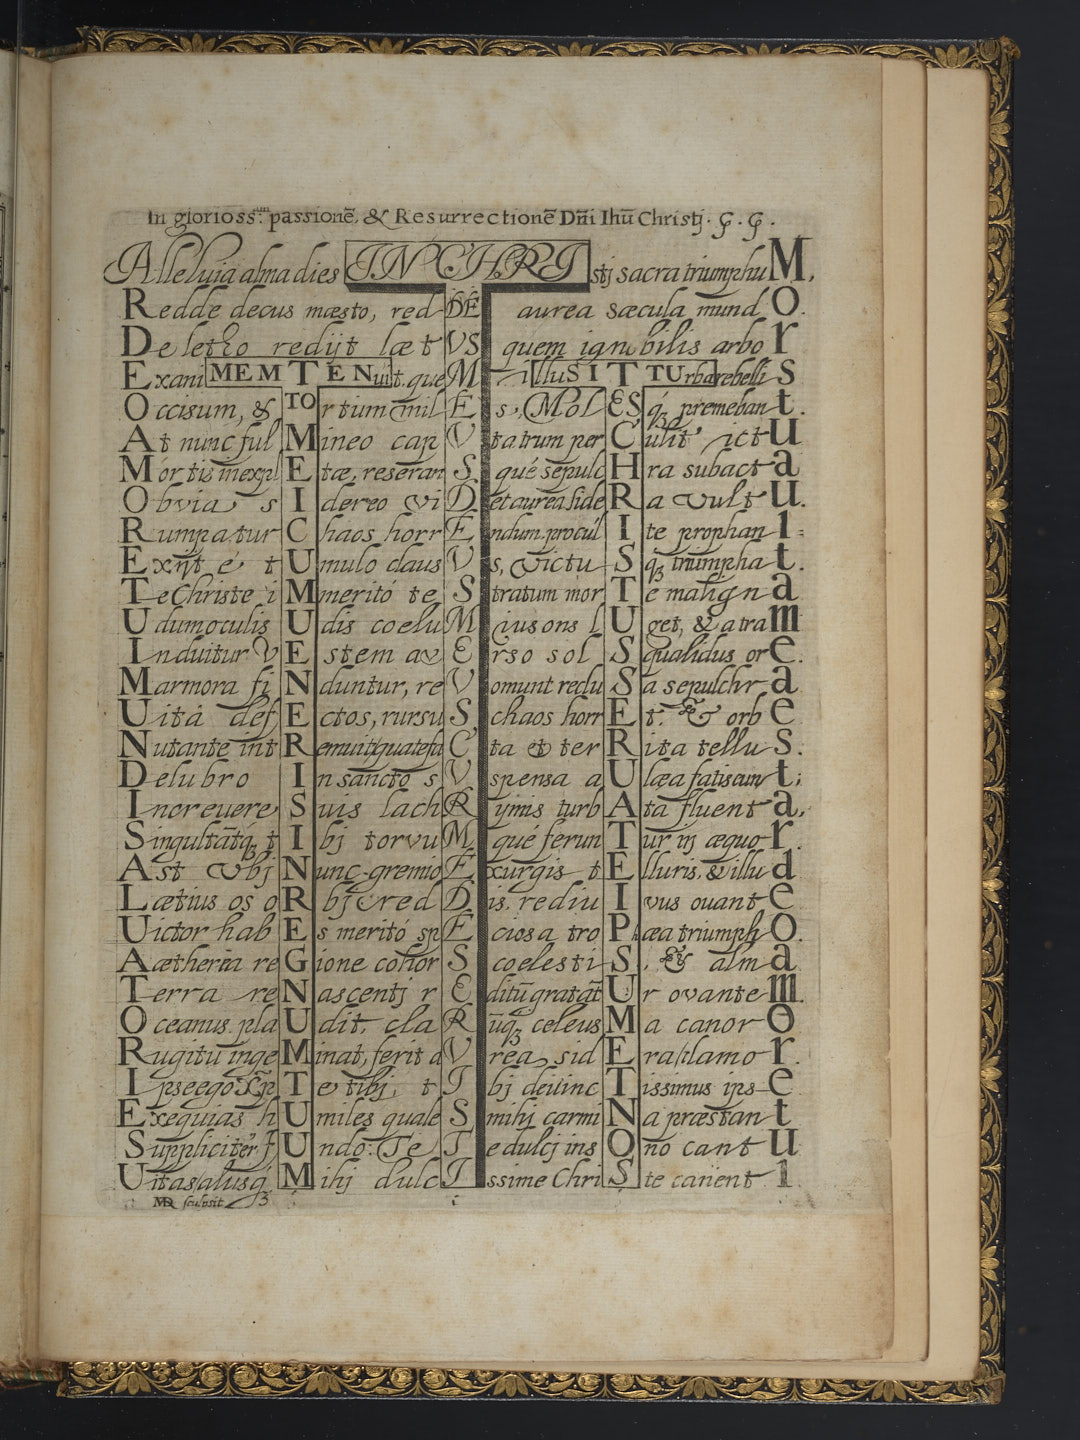 In glorioss:um passionē, & Resurrectionē Dn̄i Ihū Christj. G. G.
Alleluia alma dies IN CHRI stj sacra triumphu M.
Redde decus mæsto, red DE aurea sæcula mund O.
De letho redijt læt VS quem ignobilis arbo r
Exani MEM TEN uit, que M illuSIT TUrba rebelli s
Occisum, & TO rtium mil E s, Mol ES q́ꝫ premeban t.
At nunc ful M ineo cap V t atrum per C ulit ict u
Mortis inexpl E tæ, reseran S qué sepulc H ra subact a
Obvia s I dereo vi D et aurea side R a vult u.
Rumpatur C haos horr E ndum procúl I te prophan I
Exijt é t U mulo claus V s, victu S qꝫ triumpha t.
Te Christe i M meritó te S tratum mor T e malign a
Udum oculis U dis coelu M ius ons l U get, & atra m
Induitur V E stem av E rso sol S squalidus or e.
Marmora fi N duntur, re V omunt redu S a sepulchr a
Uitá def E ctos, rursu S chaos horr E t. & orb e
Nutante int R emuit quatefa C ta & ter R ita tellu s.
Delubro I n sancto s V spensa a U læa fatiscun t;
Increuere S uis lach R ymis turb A ta fluent a,
Singultātqꝫ t I bj torvu M qué ferun T ur in æquo r.
Ast vbj N unc gremio E xurgis t E lluris, & illu d
Lætius os o R bj cred D is, rediu I vus ouant e
Uictor hab E s meritó sp E ciosa tro P æa triumph O.
Aætheria re G ione cohor S coelesti S, & alm a
Terra re N ascentj r E ditū gratāt U r ovante m.
Oceanus pla U dit, cla R ūqꝫ celeus M a canor O
Rugitu inge M inat, ferit a V rea sid E ra clamo r.
Ipse ego T e tibj, t I bj deuinc T issimus ips e
Exequias h U miles quale S mihj carmi N a præstan t
Suppliciter U ndo: Te T e dulcj ins O no cant u
Uitas alusqꝫ M ihj dulc I ssime Chri S te canent l
MD sculpsit